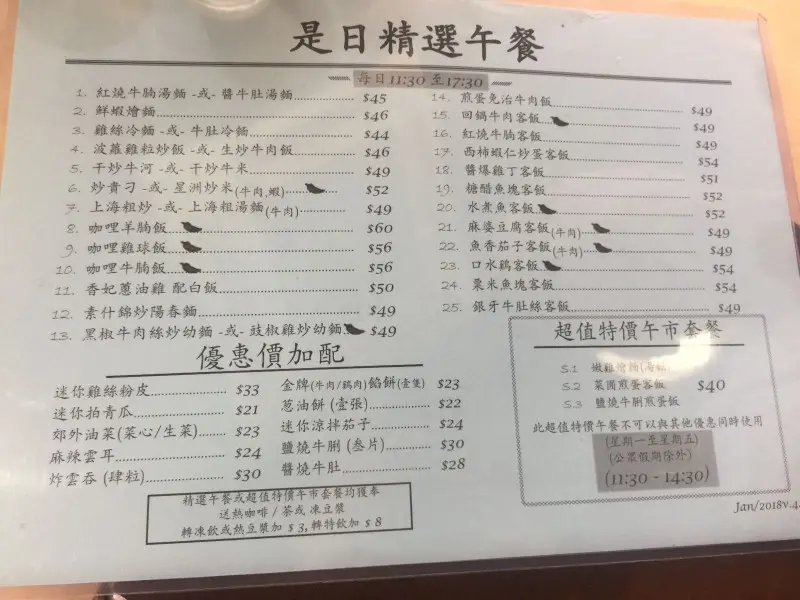 是日精選午餐
每日11:30 至17:30
1. 紅燒牛腩湯麵 -或- 醬牛肚湯麵 $45
2. 鮮蝦燴麵 $46
3. 雞絲冷麵 -或- 牛肚冷麵 $44
4. 波蘿雞粒炒飯 -或- 生炒牛肉飯 $46
5. 干炒牛河 -或- 干炒牛米 $49
6. 炒貴刁 -或- 星洲炒米(牛肉,蝦) $52
7. 上海粗炒 -或- 上海粗湯麵(牛肉) $49
8. 咖哩羊腩飯 $60
9. 咖哩雞球飯 $56
10. 咖哩牛腩飯 $56
11. 香妃蔥油雞 配白飯 $50
12. 素什錦炒陽春麵 $49
13. 黑椒牛肉絲炒幼麵 -或- 豉椒雞炒幼麵 $49
14. 煎蛋免治牛肉飯 $49
15. 回鍋牛肉客飯 $49
16. 紅燒牛腩客飯 $49
17. 西柿蝦仁炒蛋客飯 $54
18. 醬爆雞丁客飯 $51
19. 糖醋魚塊客飯 $52
20. 水煮魚客飯 $52
21. 麻婆豆腐客飯(牛肉) $49
22. 魚香茄子客飯(牛肉) $49
23. 口水鷄客飯 $54
24. 粟米魚塊客飯 $54
25. 銀牙牛肚絲客飯 $49
優惠價加配
迷你雞絲粉皮 $33
迷你拍青瓜 $21
郊外油菜(菜心/生菜) $23
麻辣雲耳 $24
炸雲吞 (肆粒) $30
金牌(牛肉/鷄肉)餡餅(壹隻) $23
蔥油餅 (壹張) $22
迷你涼拌茄子 $24
鹽燒牛脷 (叁片) $30
醬燒牛肚 $28
精選午餐或超值特價午市套餐均獲奉
送熱咖啡 / 茶或 凍豆漿
轉凍飲或熱豆漿加 $3,轉特飲加 $8
超值特價午市套餐
S.1 嫩雞燴麵(湯飯)
S.2 菜圃煎蛋客飯 $40
S.3 鹽燒牛脷煎蛋飯
此超值特價午餐不可以與其他優惠同時使用
(星期一至星期五)
(公眾假期除外)
(11:30 - 14:30)
Jan/2018v.4